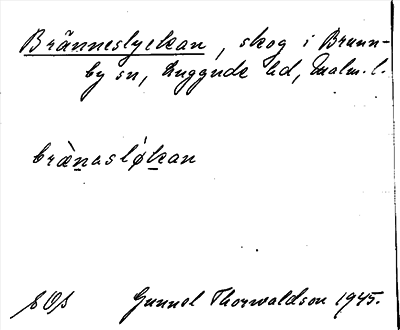 Bränneslyckan, skog i Brunn-
by sn, Luggude hd, Malm. l.
bræ̀nasløkan
Gunnel Thorwaldson 1945.